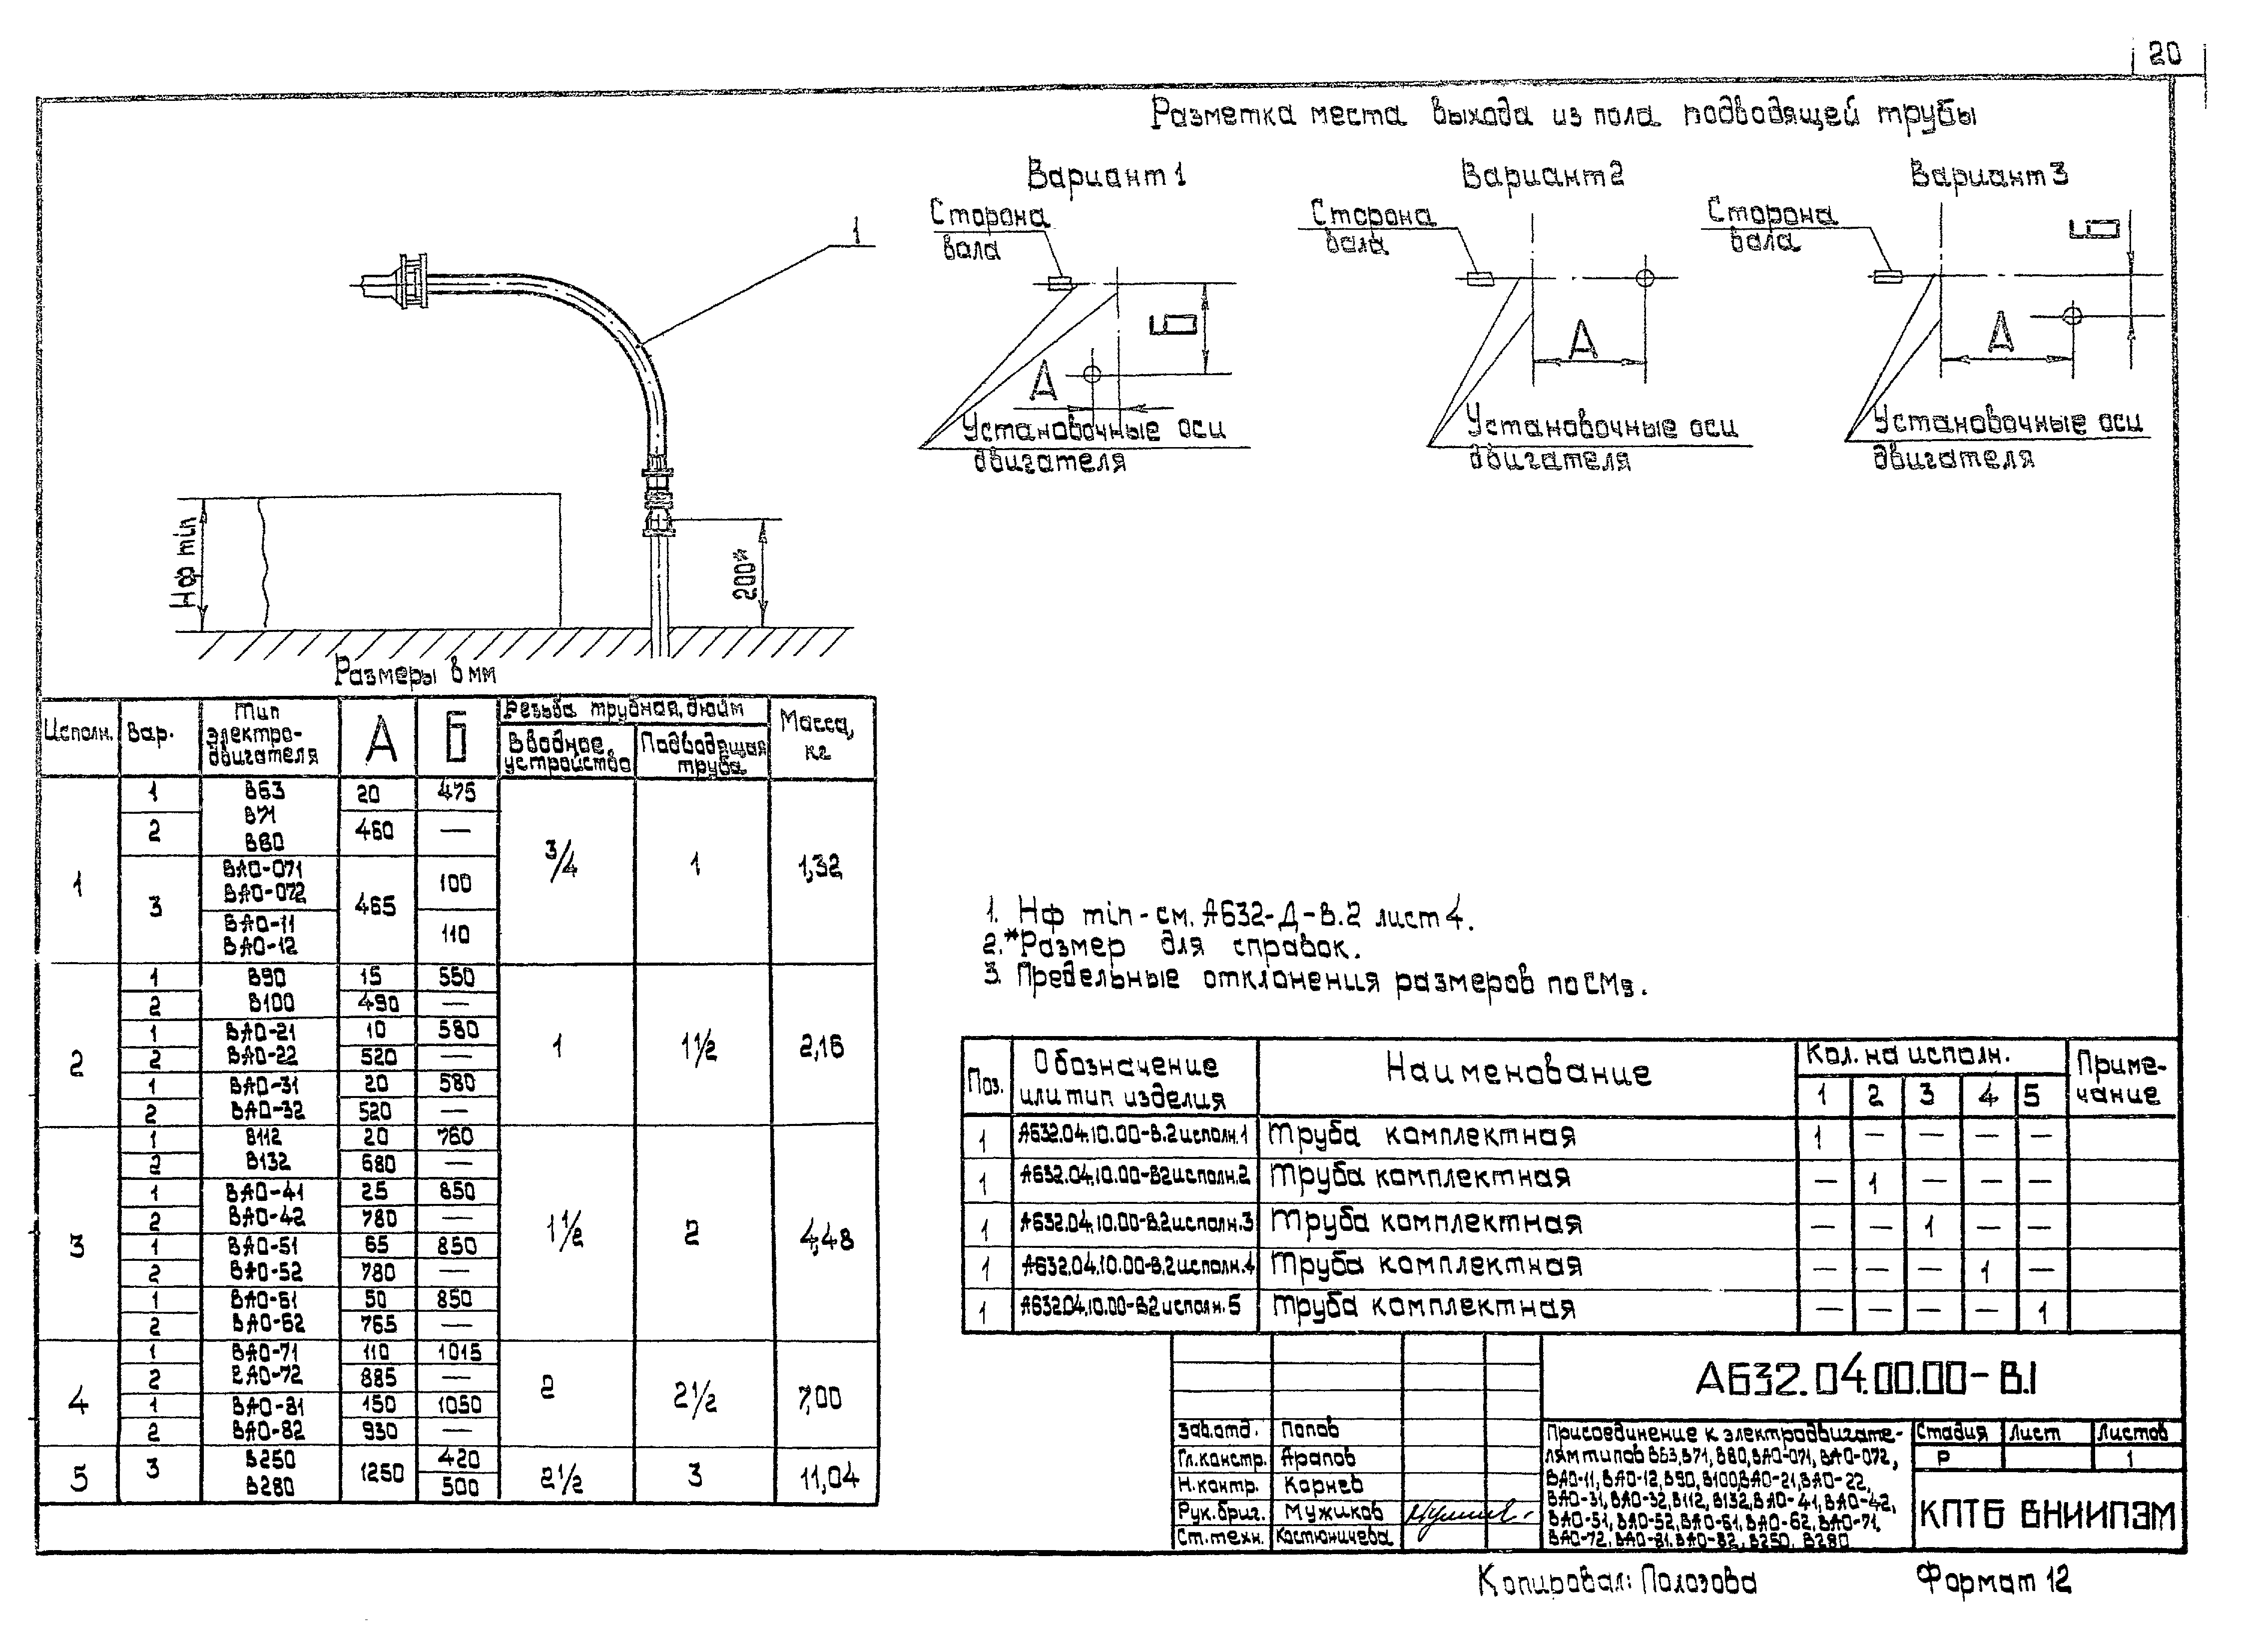 20
Разметка места выхода из пола подводящей трубы
Вариант 1
Вариант 2
Вариант 3
Сторона
вала
Сторона
вала
Сторона
вала
1
Б
А
А
Б
А
Установочные оси
двигателя
Установочные оси
двигателя
Установочные оси
двигателя
Нф min
200*
Размеры в мм
Исполн. Вар. Тип электро-двигателя А Б Резьба трубная, дюйм Масса, кг
Вводное устройство Подводящая труба
1 1 В63 20 475 3/4 1 1,32
В71
2 В80 460 —
3 ВАО-071 465 100
ВАО-072
ВАО-11 110
ВАО-12
2 1 В90 15 550 1 1½ 2,16
2 В100 490 —
1 ВАО-21 10 580
2 ВАО-22 520 —
1 ВАО-31 20 580
2 ВАО-32 520 —
3 1 В112 20 760 1½ 2 4,48
2 В132 680 —
1 ВАО-41 25 850
2 ВАО-42 780 —
1 ВАО-51 65 850
2 ВАО-52 780 —
1 ВАО-61 50 850
2 ВАО-62 765 —
4 1 ВАО-71 110 1015 2 2½ 7,00
2 ВАО-72 885 —
1 ВАО-81 150 1050
2 ВАО-82 930 —
5 3 В250 1250 420 2½ 3 11,04
В280 500
1. Нф min - см. А632-Д-В.2 лист 4.
2.*Размер для справок.
3. Предельные отклонения размеров по СМ8.
Поз. Обозначение или тип изделия Наименование Кол. на исполн. Приме-чание
1 2 3 4 5
1 А632.04.10.00-В.2 исполн.1 Труба комплектная 1 — — — —
1 А632.04.10.00-В2 исполн.2 Труба комплектная — 1 — — —
1 А632.04.10.00-В.2 исполн.3 Труба комплектная — — 1 — —
1 А632.04.10.00-В.2 исполн.4 Труба комплектная — — — 1 —
1 А632.04.10.00-В2 исполн.5 Труба комплектная — — — — 1
А632.04.00.00-В.1
Зав.отд. Попов
Гл.констр. Арапов
Н.контр. Корнев
Рук.бриг. Мужиков
Ст.техн. Костюничева
Присоединение к электродвигате-
лям типов В63,В71, В80,ВАО-071, ВАО-072,
ВАО-11, ВАО-12, В90, В100,ВАО-21,ВАО-22,
ВАО-31, ВАО-32, В112, В132, ВАО-41, ВАО-42,
ВАО-51, ВАО-52, ВАО-61, ВАО-62, ВАО-71,
ВАО-72, ВАО-81, ВАО-82, В250, В280
Стадия Лист Листов
Р 1
КПТБ ВНИИПЭМ
Копировал: Полозова
Формат 12